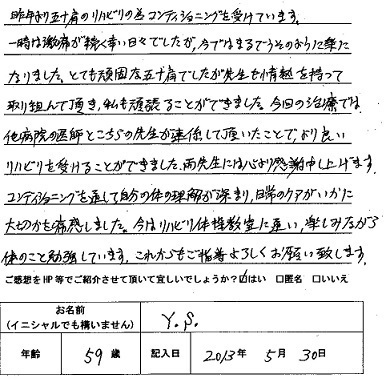 昨年より五十肩のリハビリの為コンディショニングを受けています。
一時は激痛が続く辛い日々でしたが、今ではまるでうそのように楽に
なりました。とても頑固な五十肩でしたが先生も情熱を持って
取り組んで頂き、私も頑張ることができました。今回の治療では
他病院の医師とこちらの先生が連係して頂いたことで、より良い
リハビリを受けることができました。両先生には心より感謝申し上げます。
コンディショニングを通して自分の体の理解が深まり、日常のケアがいかに
大切かを痛感しました。今はリハビリ体操教室に通い、楽しみながら
体のこと勉強しています。これからもご指導よろしくお願い致します。
ご感想をHP等でご紹介させて頂いて宜しいでしょうか?☑はい □匿名 □いいえ
お名前
(イニシャルでも構いません) Y.S.
年齢 59 歳 記入日 2013年 5月 30日